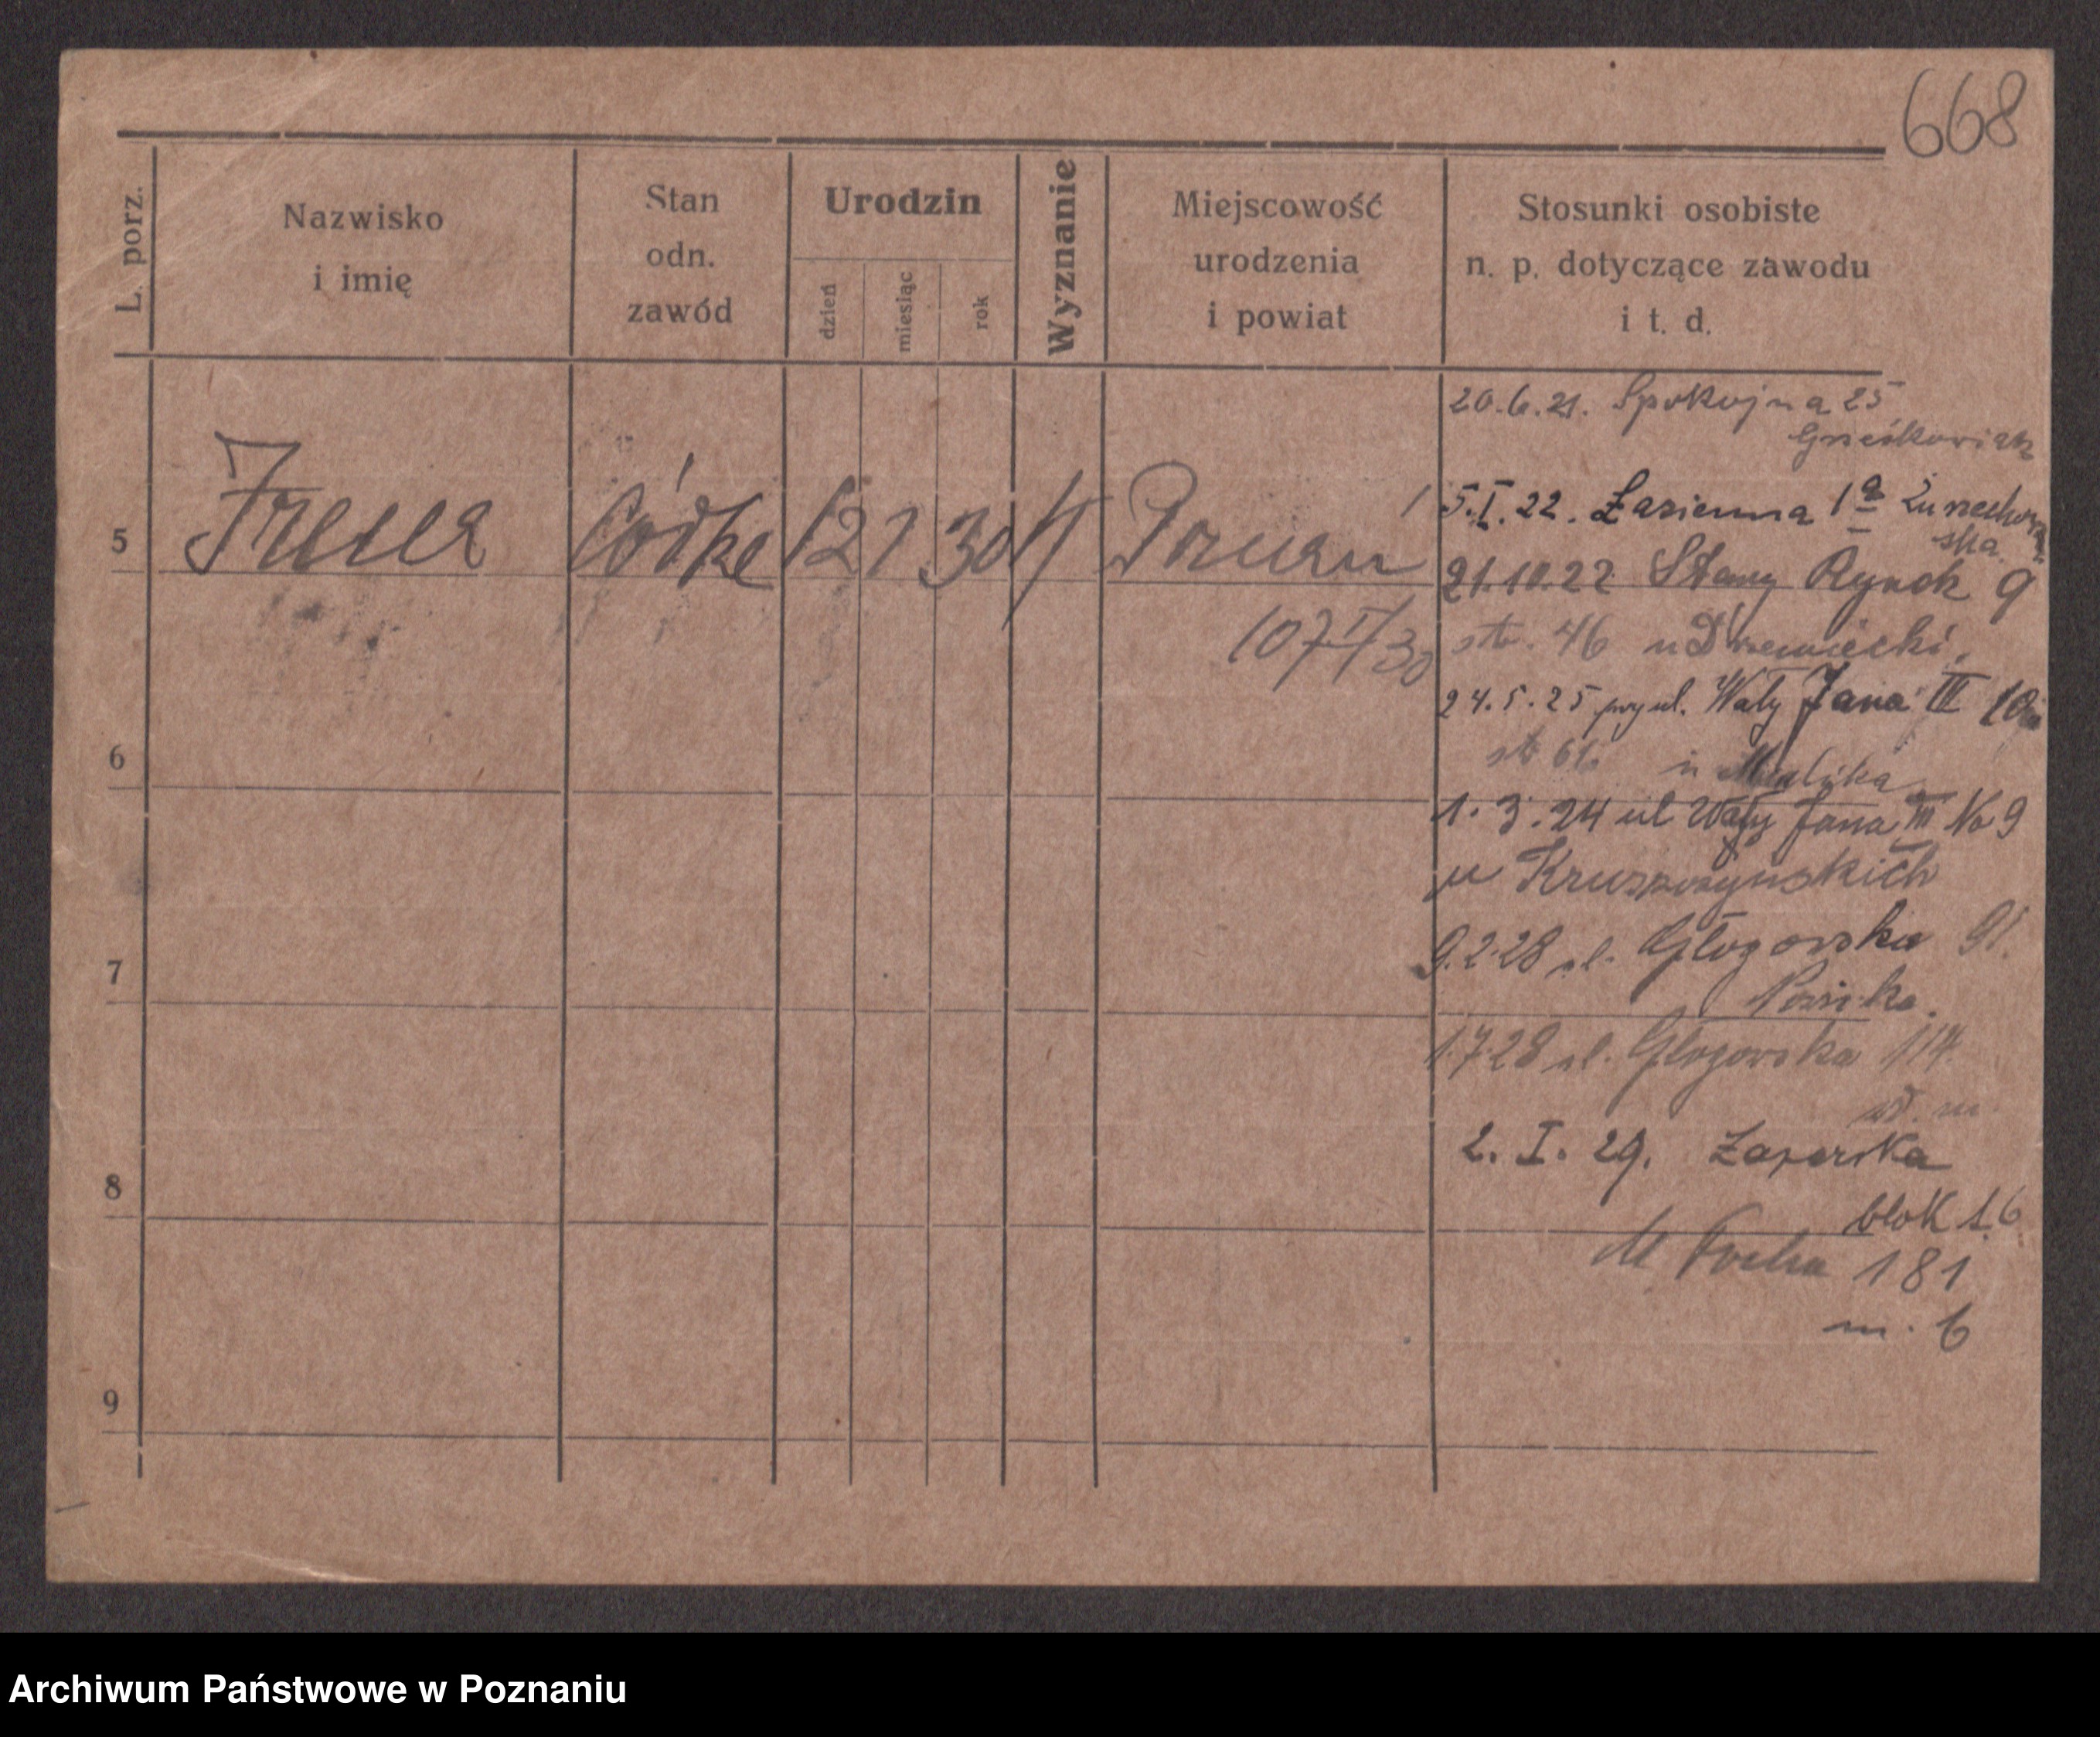 668
L. porz.
Nazwisko
i imię
Stan
odn.
zawód
Urodzin
dzień
miesiąc
rok
Wyznanie
Miejscowość
urodzenia
i powiat
Stosunki osobiste
n. p. dotyczące zawodu
i t. d.
20.6.21. Spokojna 25
Grześkowiak
5 Irena Córka 12 1 30 Poznań
5.I.22. Łazienna 1a
ska
21.10.22 Stary Rynek 9
107 II/30
str. 46 u Drzewiecki.
24.5.25 przy ul. Wały Jana III 10a
6
u Malika
1.3.24 ul Wały Jana III No 9
u Kruszczyńskich
9.2.28 ul. Głogowska 91.
7
1.7.28 ul. Głogowska 114.
wł. m.
2.I.29.
8
blok 1.6
M Focha 181
m. 6
9
Archiwum Państwowe w Poznaniu